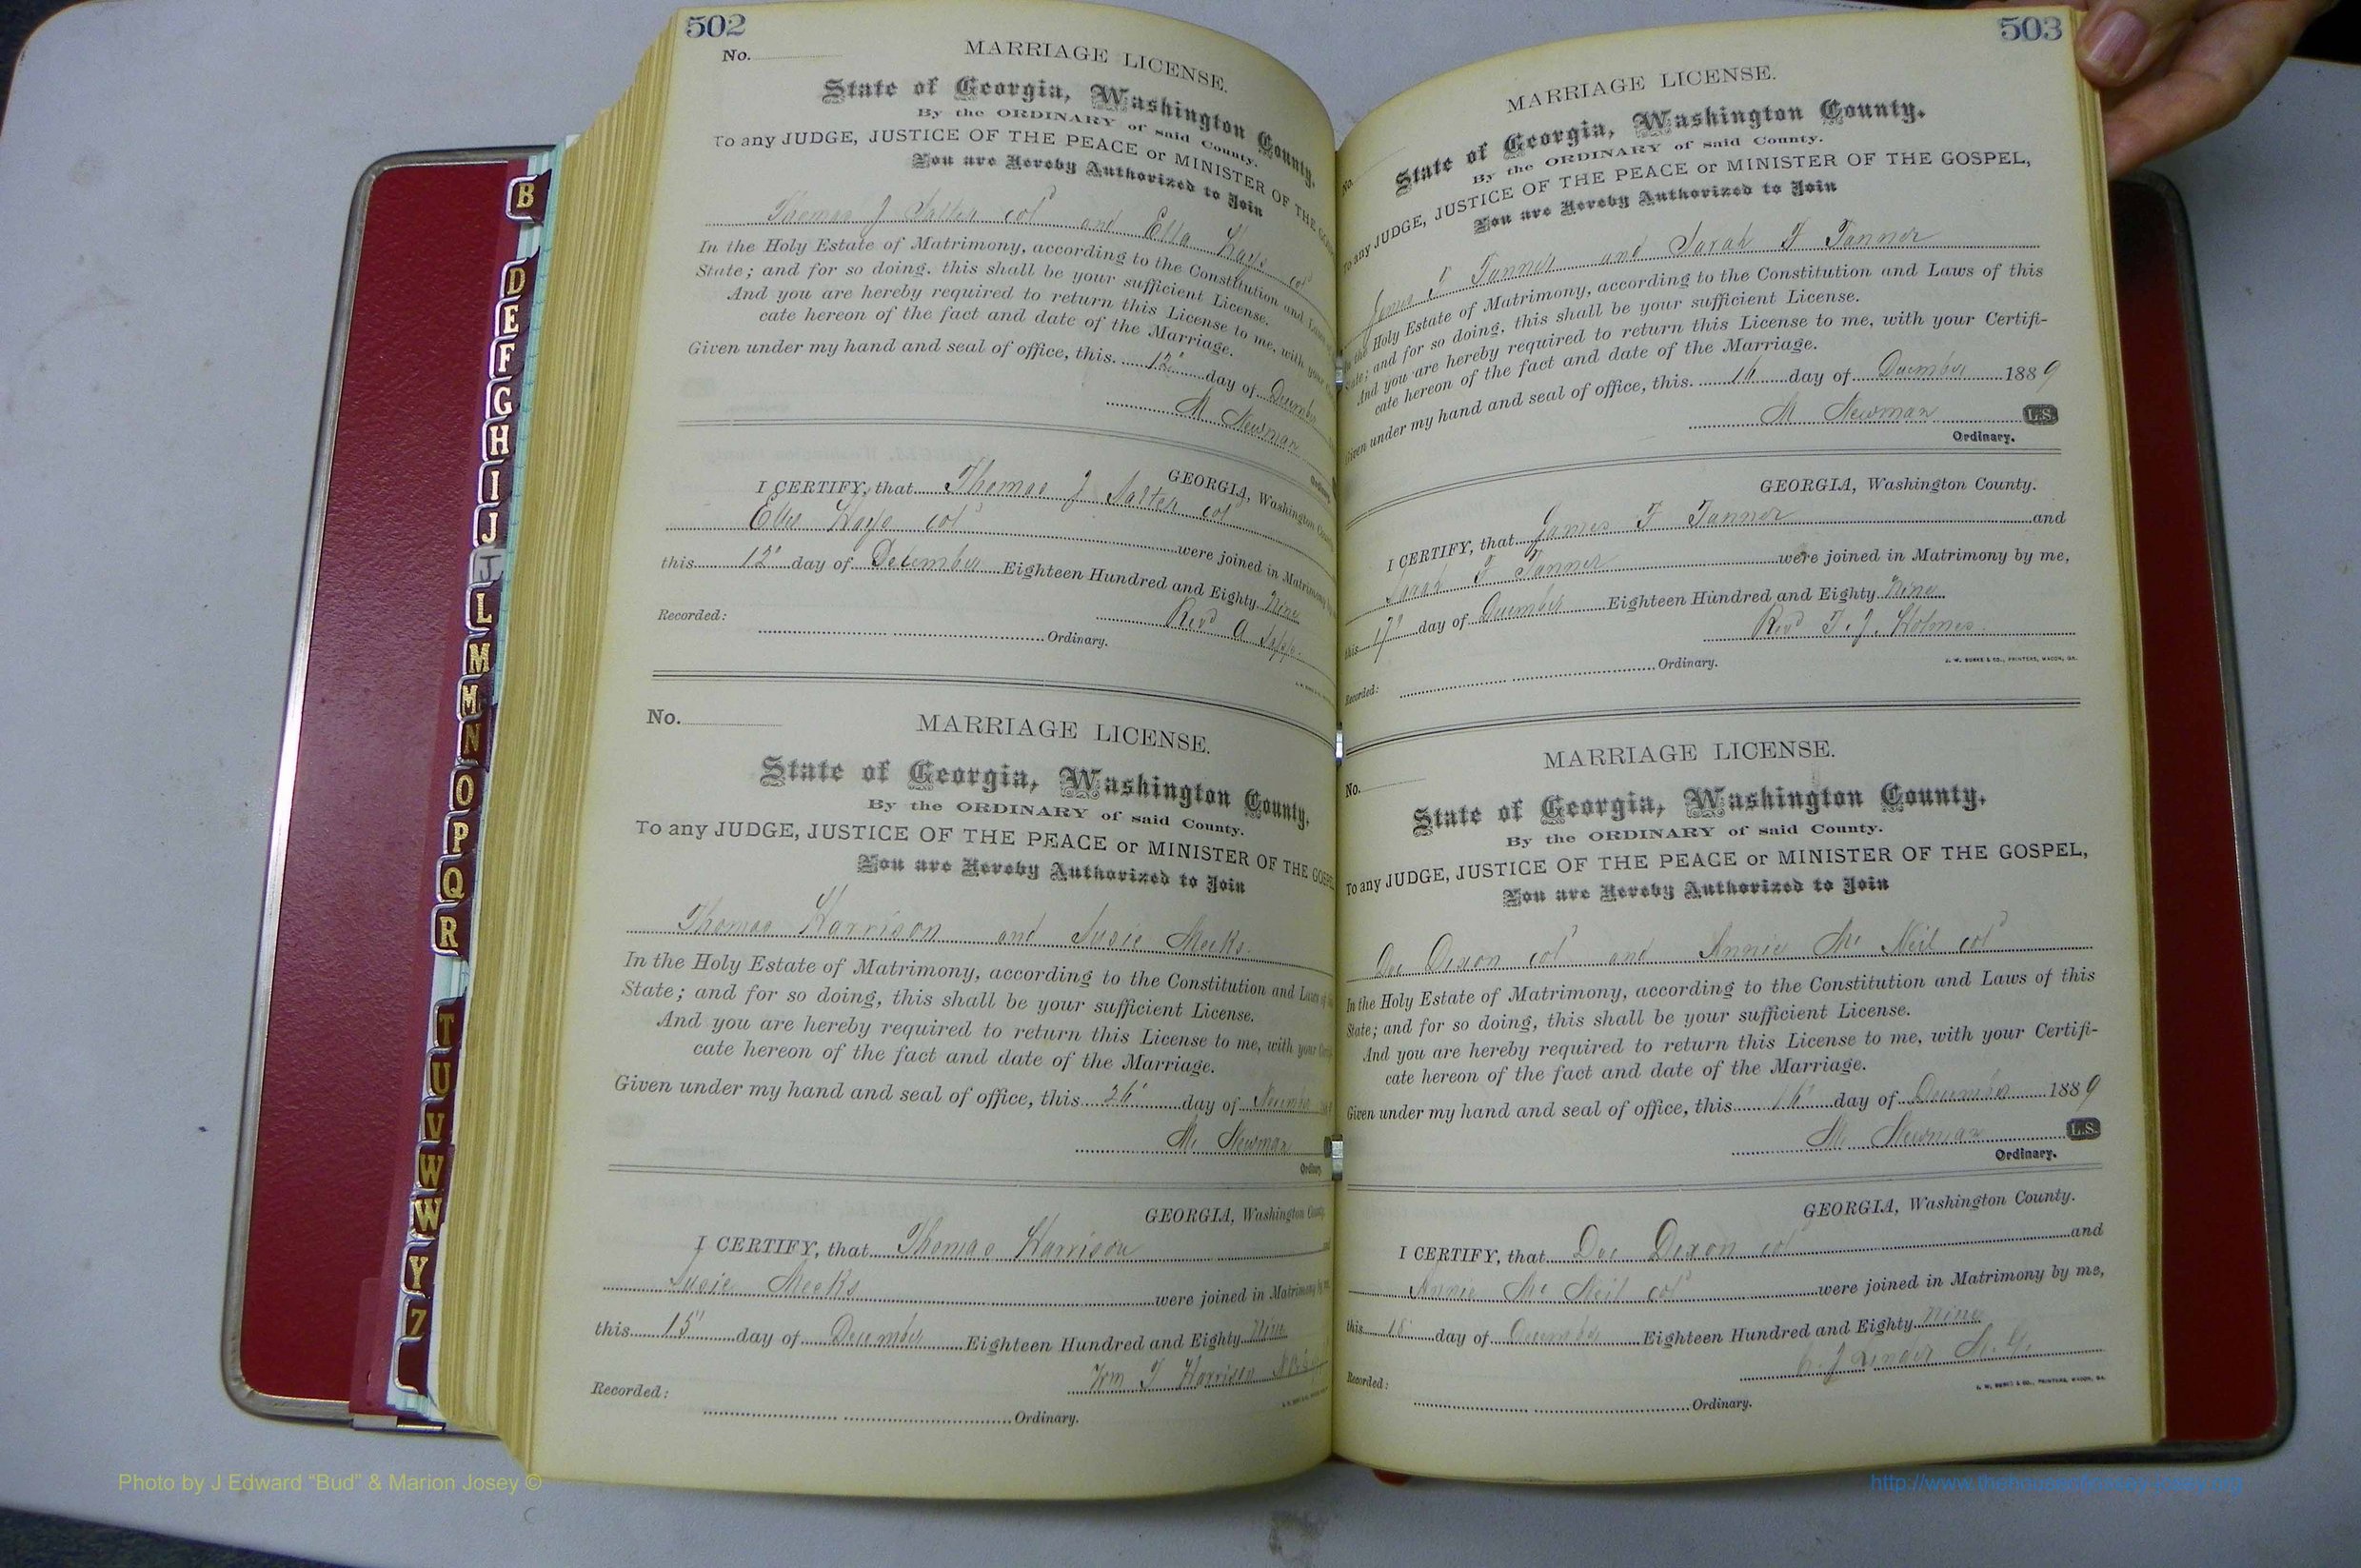 502
No.
MARRIAGE LICENSE.
State of Georgia, Washington County.
By the ORDINARY of said County.
To any JUDGE, JUSTICE OF THE PEACE or MINISTER OF THE
You are Hereby Authorized to Join
Thomas J Salter col and Ella Hays col
In the Holy Estate of Matrimony, according to the Constitution and Laws
State; and for so doing, this shall be your sufficient License.
And you are hereby required to return this License to me, with your
cate hereon of the fact and date of the Marriage.
Given under my hand and seal of office, this 12" day of December
M Newman
Ordinary.
GEORGIA, Washington
I CERTIFY, that Thomas J Salter col
Ella Hays col were joined in
this 12" day of December Eighteen Hundred and Eighty Nine
Revd A
Recorded: Ordinary.
No.
MARRIAGE LICENSE.
State of Georgia, Washington County.
By the ORDINARY of said County.
To any JUDGE, JUSTICE OF THE PEACE or MINISTER OF THE
You are Hereby Authorized to Join
Thomas Harrison and Susie Meeks
In the Holy Estate of Matrimony, according to the Constitution and Laws of
State; and for so doing, this shall be your sufficient License.
And you are hereby required to return this License to me, with your
cate hereon of the fact and date of the Marriage.
Given under my hand and seal of office, this 26" day of November
M. Newman
Ordinary
GEORGIA, Washington
I CERTIFY, that Thomas Harrison
Susie Meeks were joined in Matrimony by me,
this 15" day of December Eighteen Hundred and Eighty Nine
Wm T Harrison
Recorded: Ordinary.
503
No.
MARRIAGE LICENSE.
State of Georgia, Washington County.
By the ORDINARY of said County.
To any JUDGE, JUSTICE OF THE PEACE or MINISTER OF THE GOSPEL,
You are Hereby Authorized to Join
James F Tanner and Sarah F Tanner
In the Holy Estate of Matrimony, according to the Constitution and Laws of this
State; and for so doing, this shall be your sufficient License.
And you are hereby required to return this License to me, with your Certifi-
cate hereon of the fact and date of the Marriage.
Given under my hand and seal of office, this 16 day of December 1889
M Newman L.S.
Ordinary.
GEORGIA, Washington County.
I CERTIFY, that James F Tanner and
Sarah F Tanner were joined in Matrimony by me,
this 17" day of December Eighteen Hundred and Eighty Nine
Revd T. J. Holmes
J. W. BURKE & CO., PRINTERS, MACON, GA.
Recorded: Ordinary.
No.
MARRIAGE LICENSE.
State of Georgia, Washington County.
By the ORDINARY of said County.
To any JUDGE, JUSTICE OF THE PEACE or MINISTER OF THE GOSPEL,
You are Hereby Authorized to Join
Doc Dixon col and Annie Mc Neil col
In the Holy Estate of Matrimony, according to the Constitution and Laws of this
State; and for so doing, this shall be your sufficient License.
And you are hereby required to return this License to me, with your Certifi-
cate hereon of the fact and date of the Marriage.
Given under my hand and seal of office, this 16" day of December 1889
M. Newman L.S.
Ordinary.
GEORGIA, Washington County.
I CERTIFY, that Doc Dixon col and
Annie Mc Neil col were joined in Matrimony by me,
this 18 day of December Eighteen Hundred and Eighty nine
J. W. BURKE & CO., PRINTERS, MACON, GA.
Recorded: Ordinary.
B
D
E
F
G
H
I
J
J
L
M
M
N
O
P
Q
R
T
U
V
W
W
Y
Z
Photo by J Edward “Bud” & Marion Josey ©